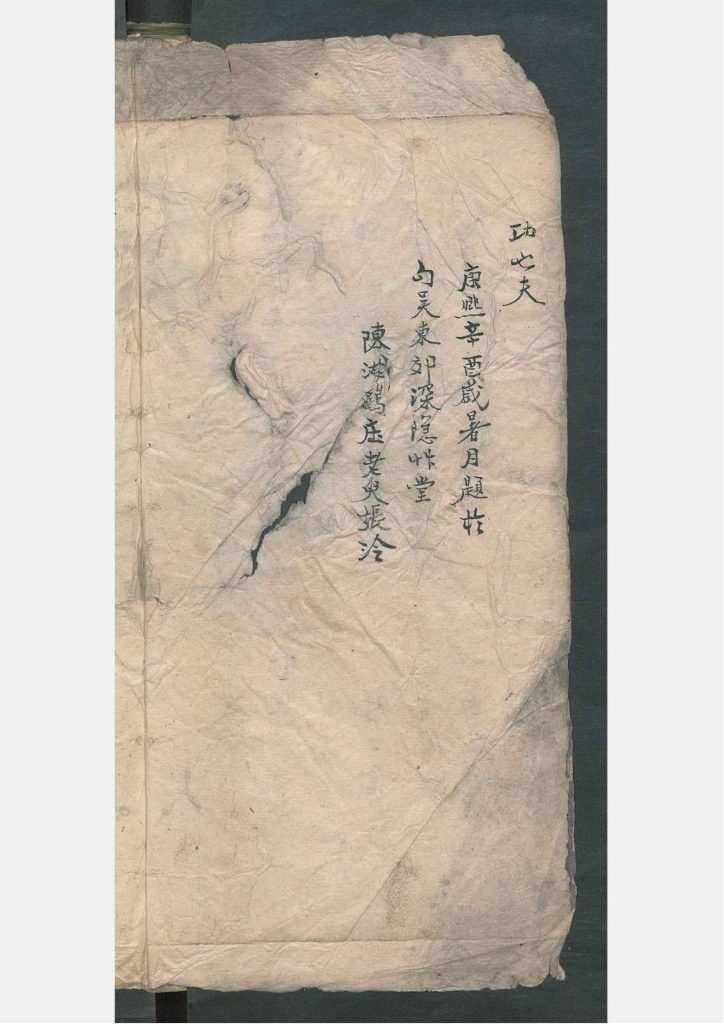 功也夫
康熙辛酉歲暑月題於
句吳東郊深隱艸堂
陳湖鷗庄老史張泠